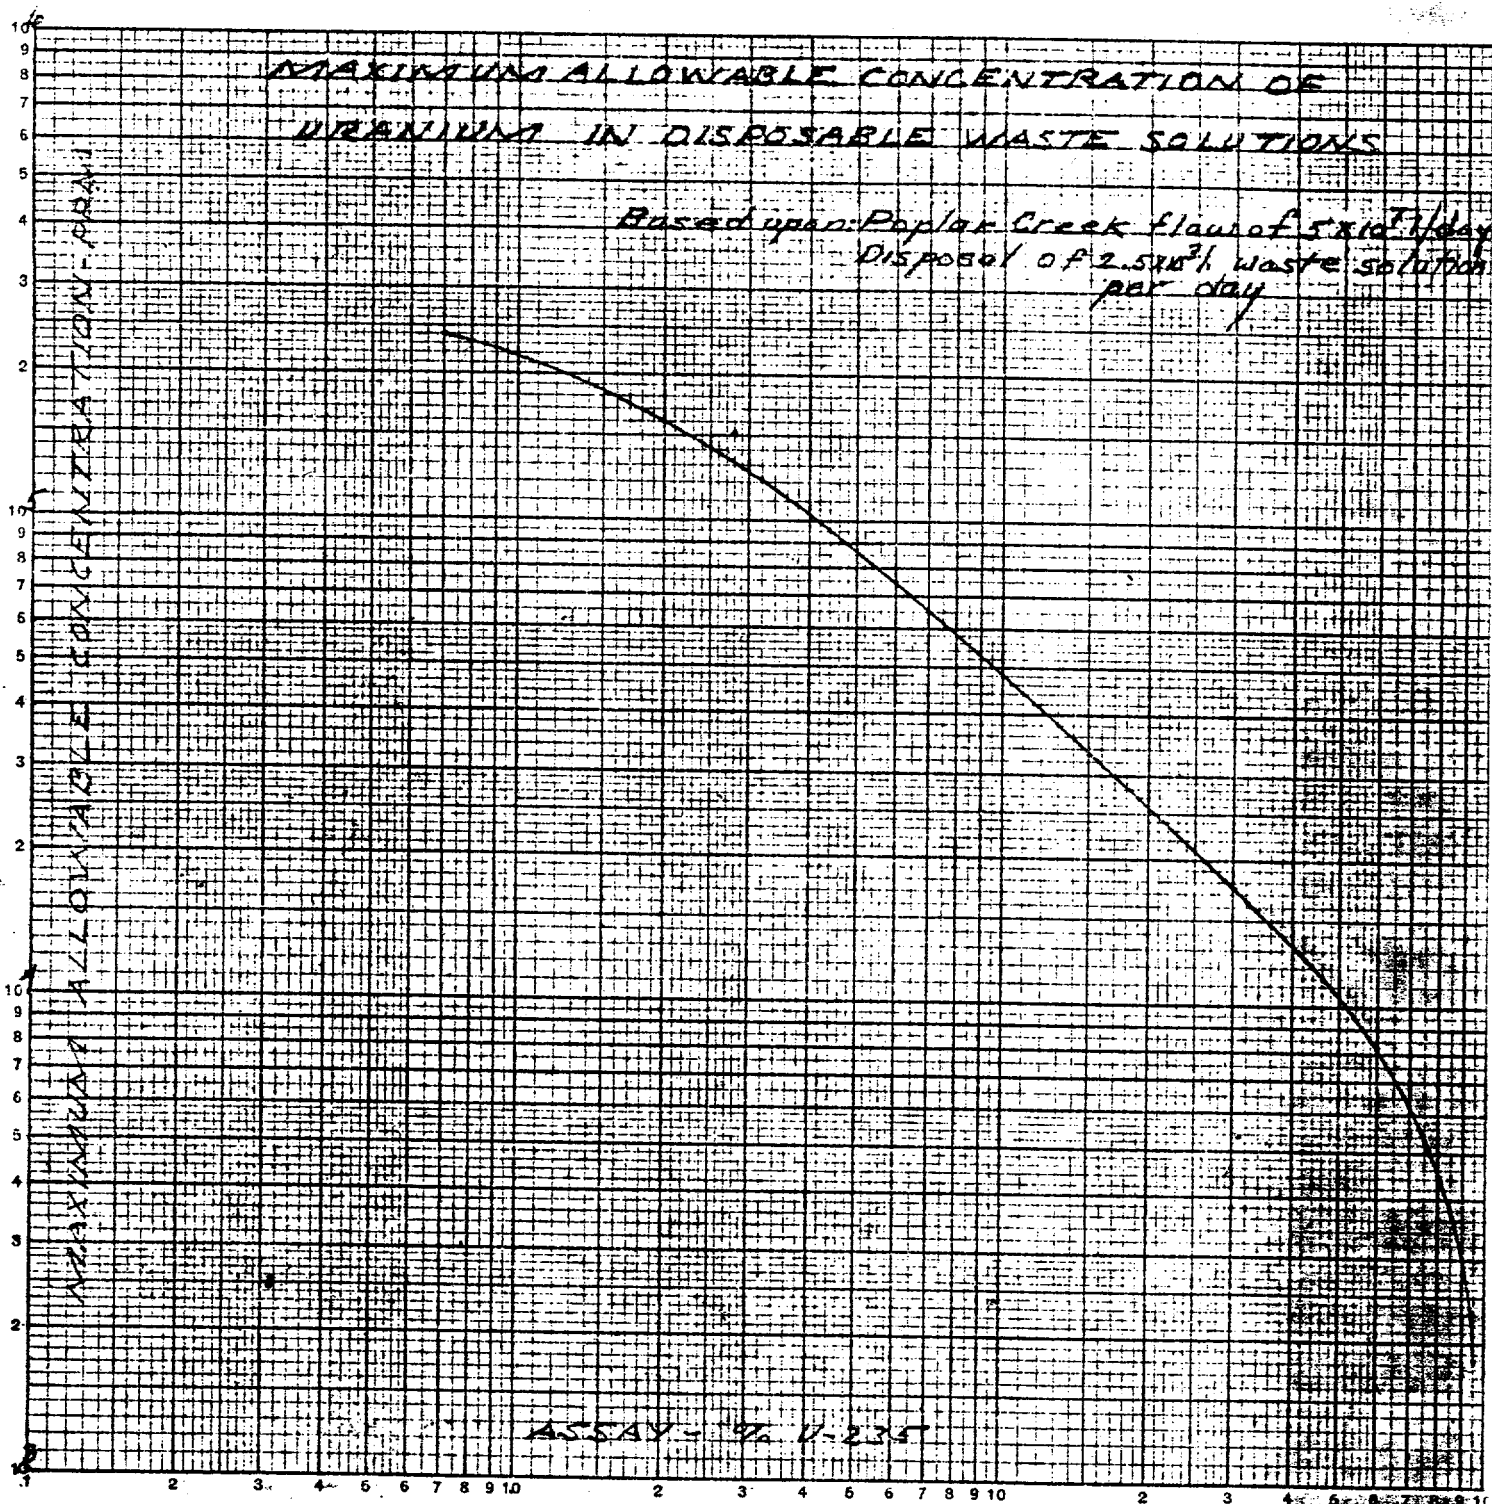 MAXIMUM ALLOWABLE CONCENTRATION OF
URANIUM IN DISPOSABLE WASTE SOLUTIONS
Based upon: Poplar Creek flow of 5x10⁷ l/day
Disposal of 2.5x10³ l. waste solution
per day
MAXIMUM ALLOWABLE CONCENTRATION - PPM
10⁶
9
8
7
6
5
4
3
2
10⁵
9
8
7
6
5
4
3
2
10⁴
9
8
7
6
5
4
3
2
10³
ASSAY - % U-235
.1 2 3 4 5 6 7 8 9 1.0 2 3 4 5 6 7 8 9 10 2 3 4 5 6 7 8 9